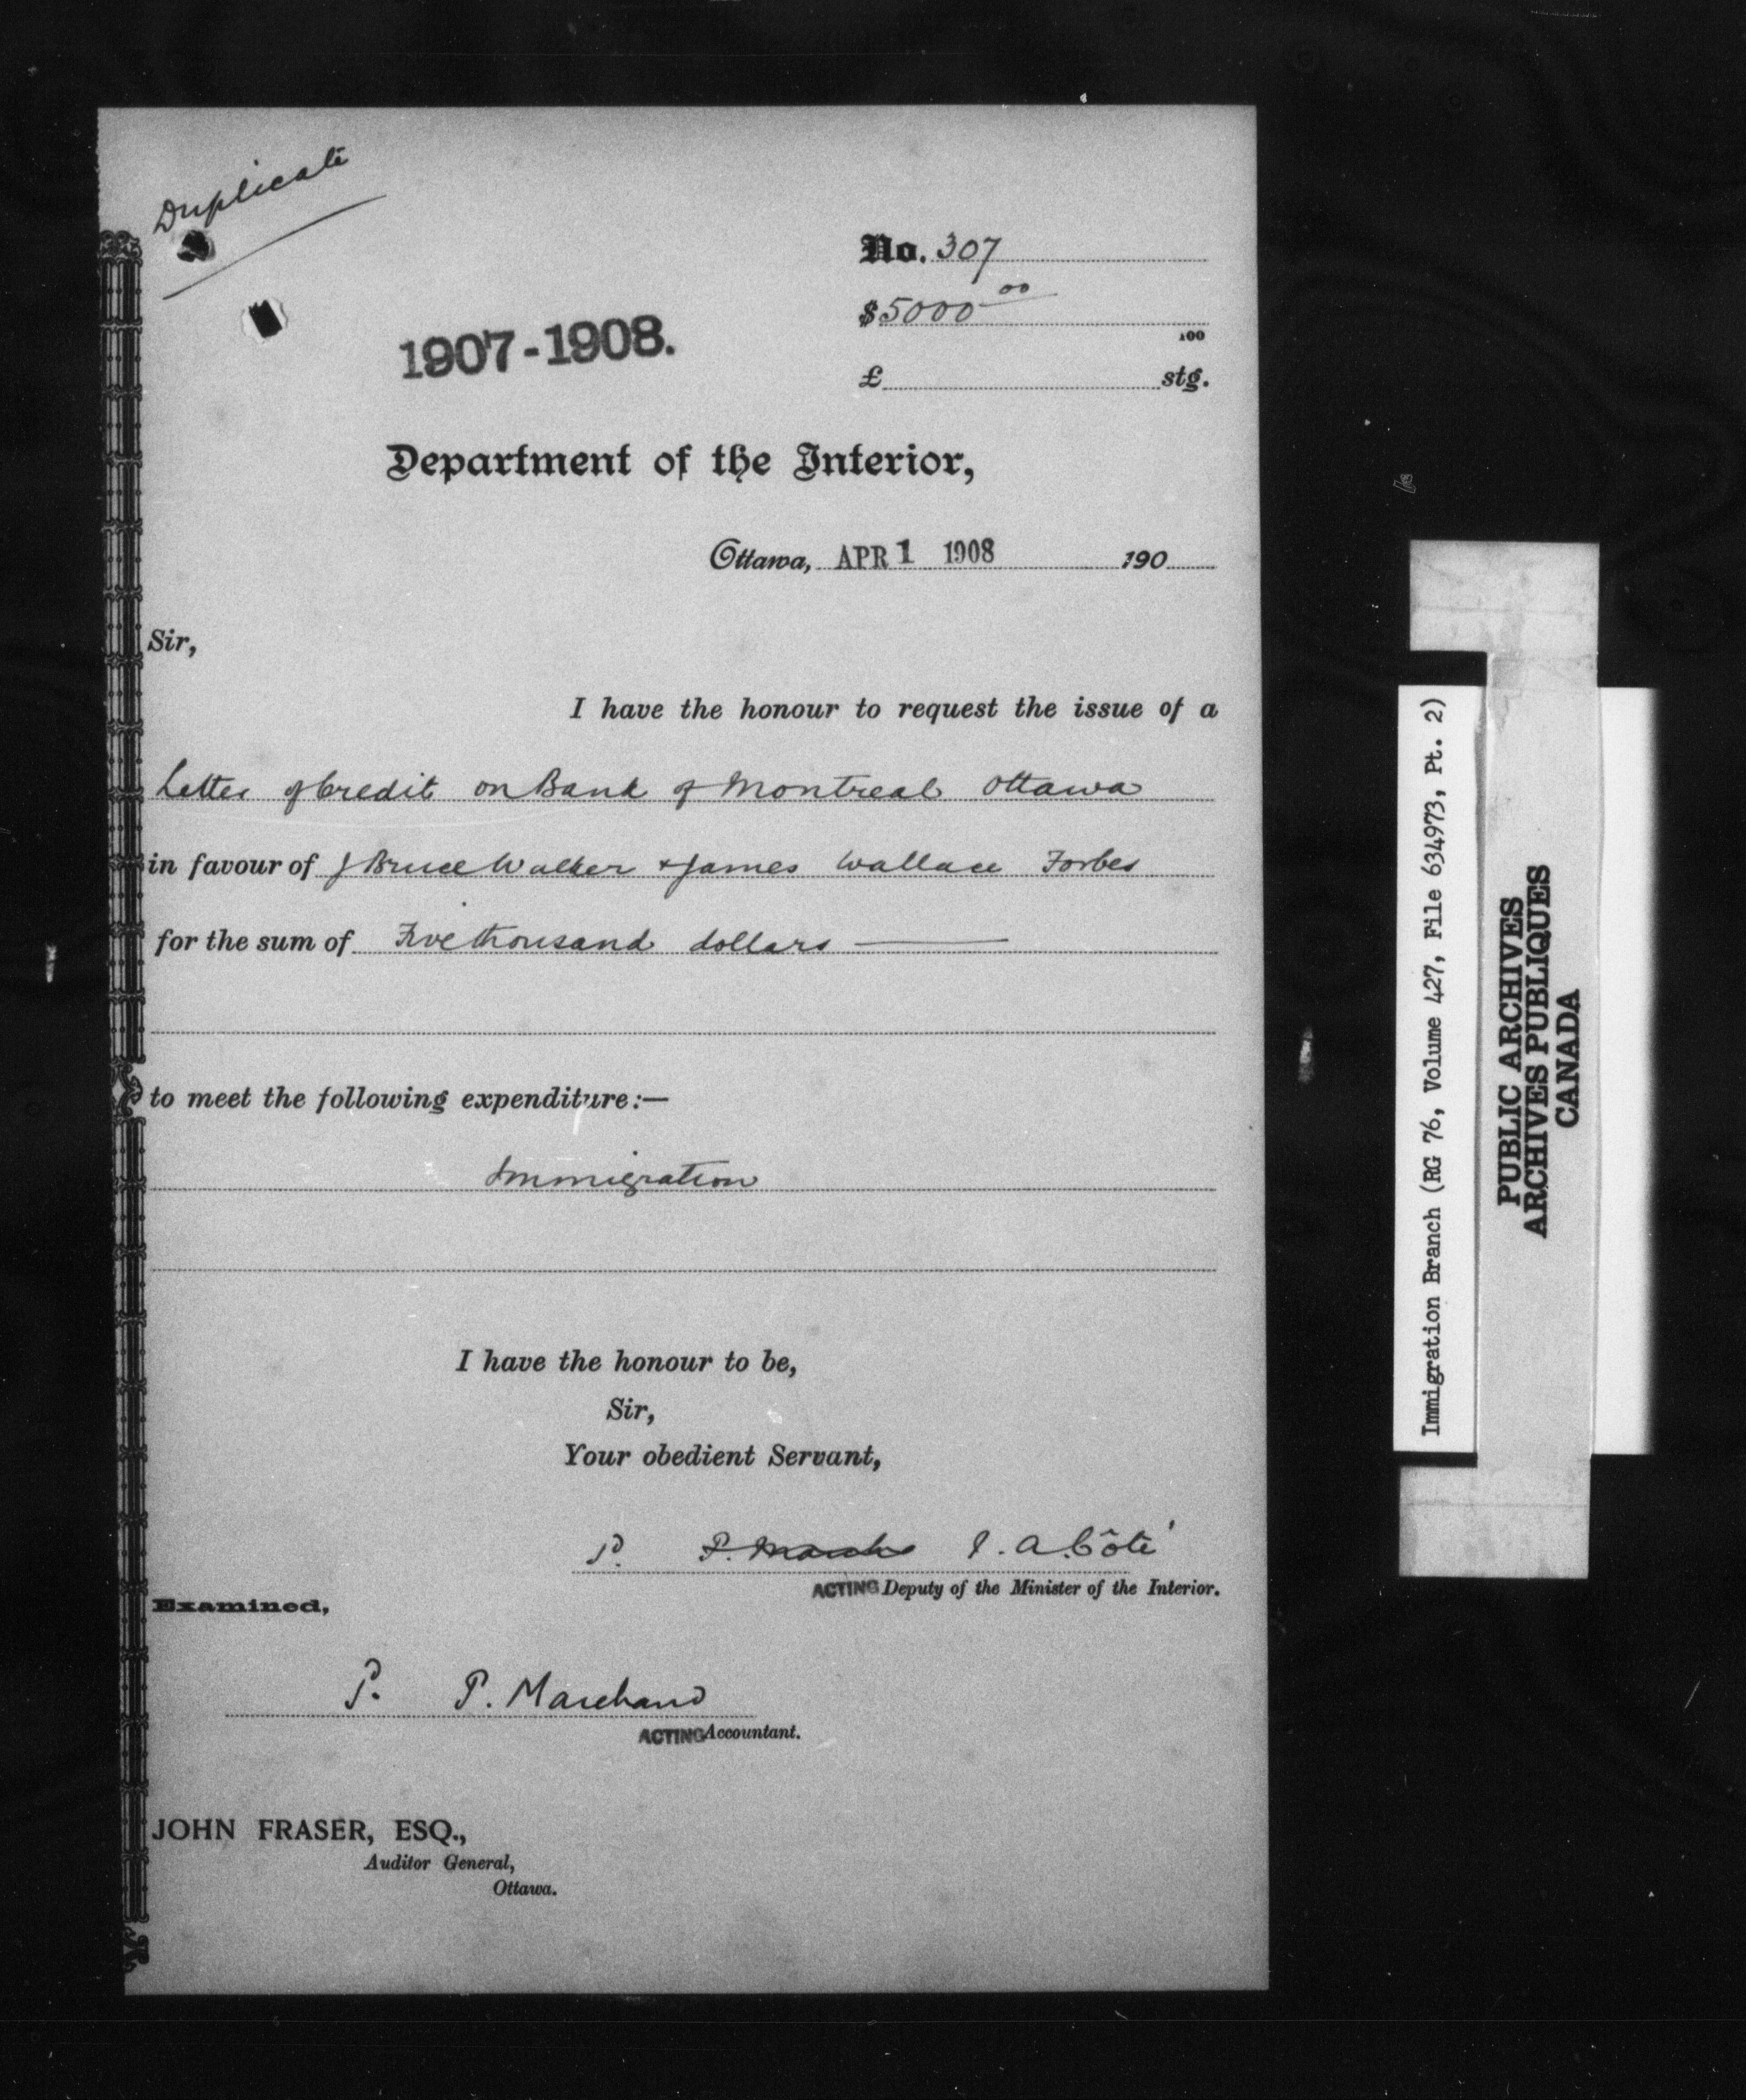 Duplicate
No. 307
$5000 00
100
1907-1908.
£ stg.
Department of the Interior,
Ottawa, APR 1 1908 190
Sir,
I have the honour to request the issue of a
Letter of Credit on Bank of Montreal Ottawa
in favour of J Bruce Walker & James Wallace Forbes
for the sum of Five thousand dollars
to meet the following expenditure:—
Immigration
I have the honour to be,
Sir,
Your obedient Servant,
P. P. A. Côté
ACTING Deputy of the Minister of the Interior.
Examined,
P. P. Marchand
ACTING Accountant.
JOHN FRASER, ESQ.,
Auditor General,
Ottawa.
Immigration Branch (RG 76, Volume 427, File 634973, Pt. 2)
PUBLIC ARCHIVES
ARCHIVES PUBLIQUES
CANADA